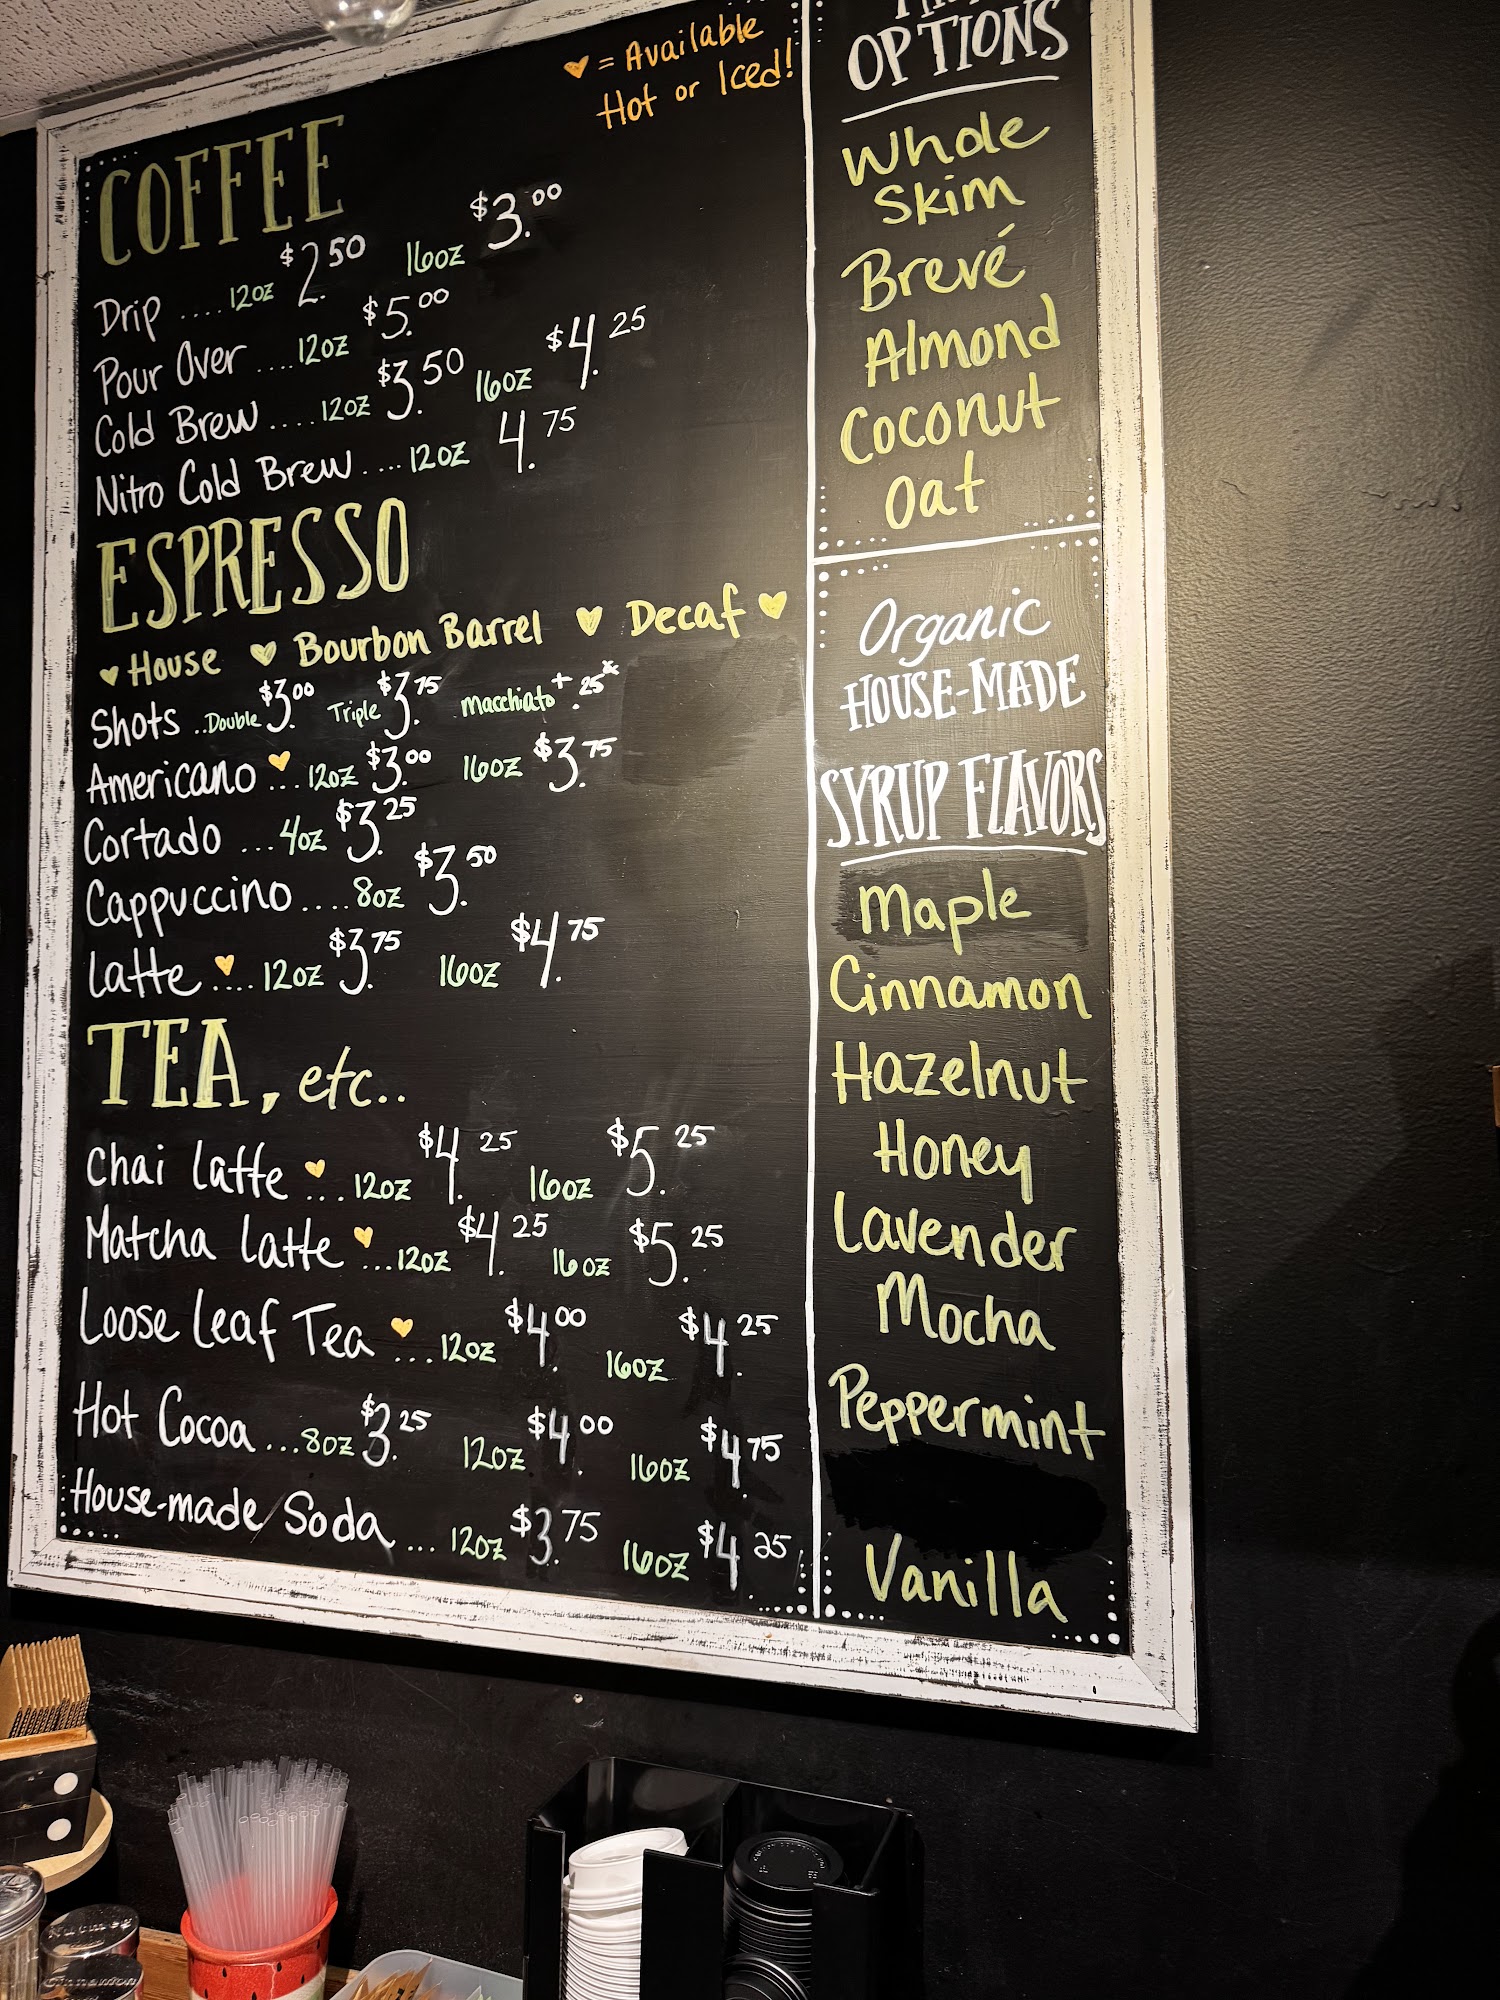 ♥ = Available
Hot or Iced!
COFFEE
Drip .... 12oz $2.50 16oz $3.00
Pour Over .... 12oz $5.00
Cold Brew .... 12oz $3.50 16oz $4.25
Nitro Cold Brew .... 12oz 4.75
ESPRESSO
♥ House ♥ Bourbon Barrel ♥ Decaf ♥
Shots .. Double $3.00 Triple $3.75 Macchiato + .25*
Americano ♥ ... 12oz $3.00 16oz $3.75
Cortado ... 4oz $3.25
Cappuccino .... 8oz $3.50
Latte ♥ .... 12oz $3.75 16oz $4.75
TEA, etc..
Chai Latte ♥ ... 12oz $4.25 16oz $5.25
Matcha Latte ♥ ... 12oz $4.25 16oz $5.25
Loose Leaf Tea ♥ ... 12oz $4.00 16oz $4.25
Hot Cocoa ... 8oz $3.25 12oz $4.00 16oz $4.75
House-made Soda ... 12oz $3.75 16oz $4.25
OPTIONS
Whole
Skim
Brevé
Almond
Coconut
Oat
Organic
HOUSE-MADE
SYRUP FLAVORS
Maple
Cinnamon
Hazelnut
Honey
Lavender
Mocha
Peppermint
Vanilla
Nutmeg
Cinnamon